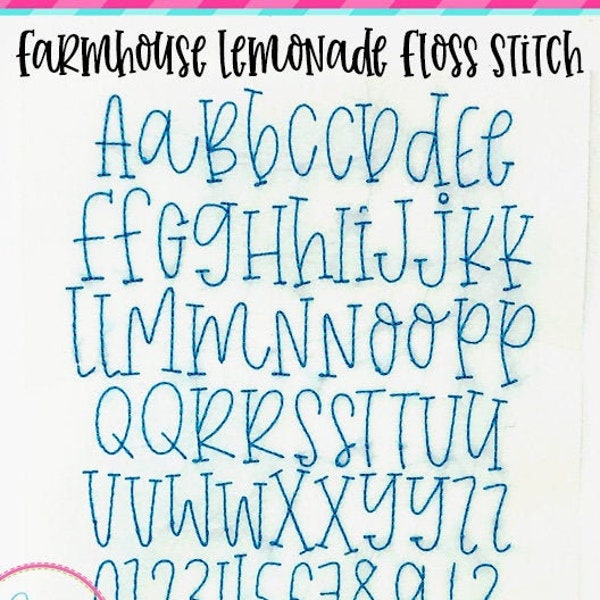 farmhouse lemonade floss stitch
AaBbCcDdEe
FfGgHhIiJjKk
LlMmNnOoPp
QqRrSsTtUu
VvWwXxYyZz
0123456789!?